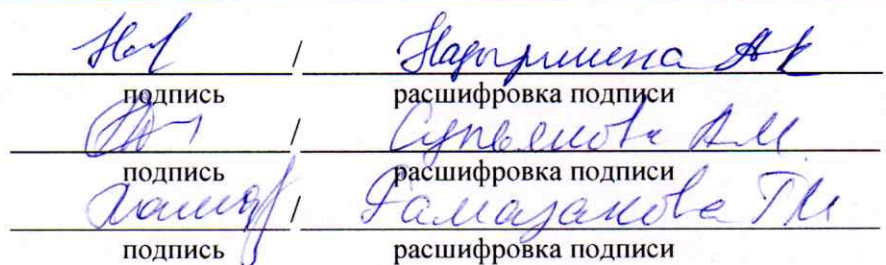 / Надыршина АК
подпись расшифровка подписи
/ Супьянова А.М
подпись расшифровка подписи
/ Рамазанова ТМ
подпись расшифровка подписи